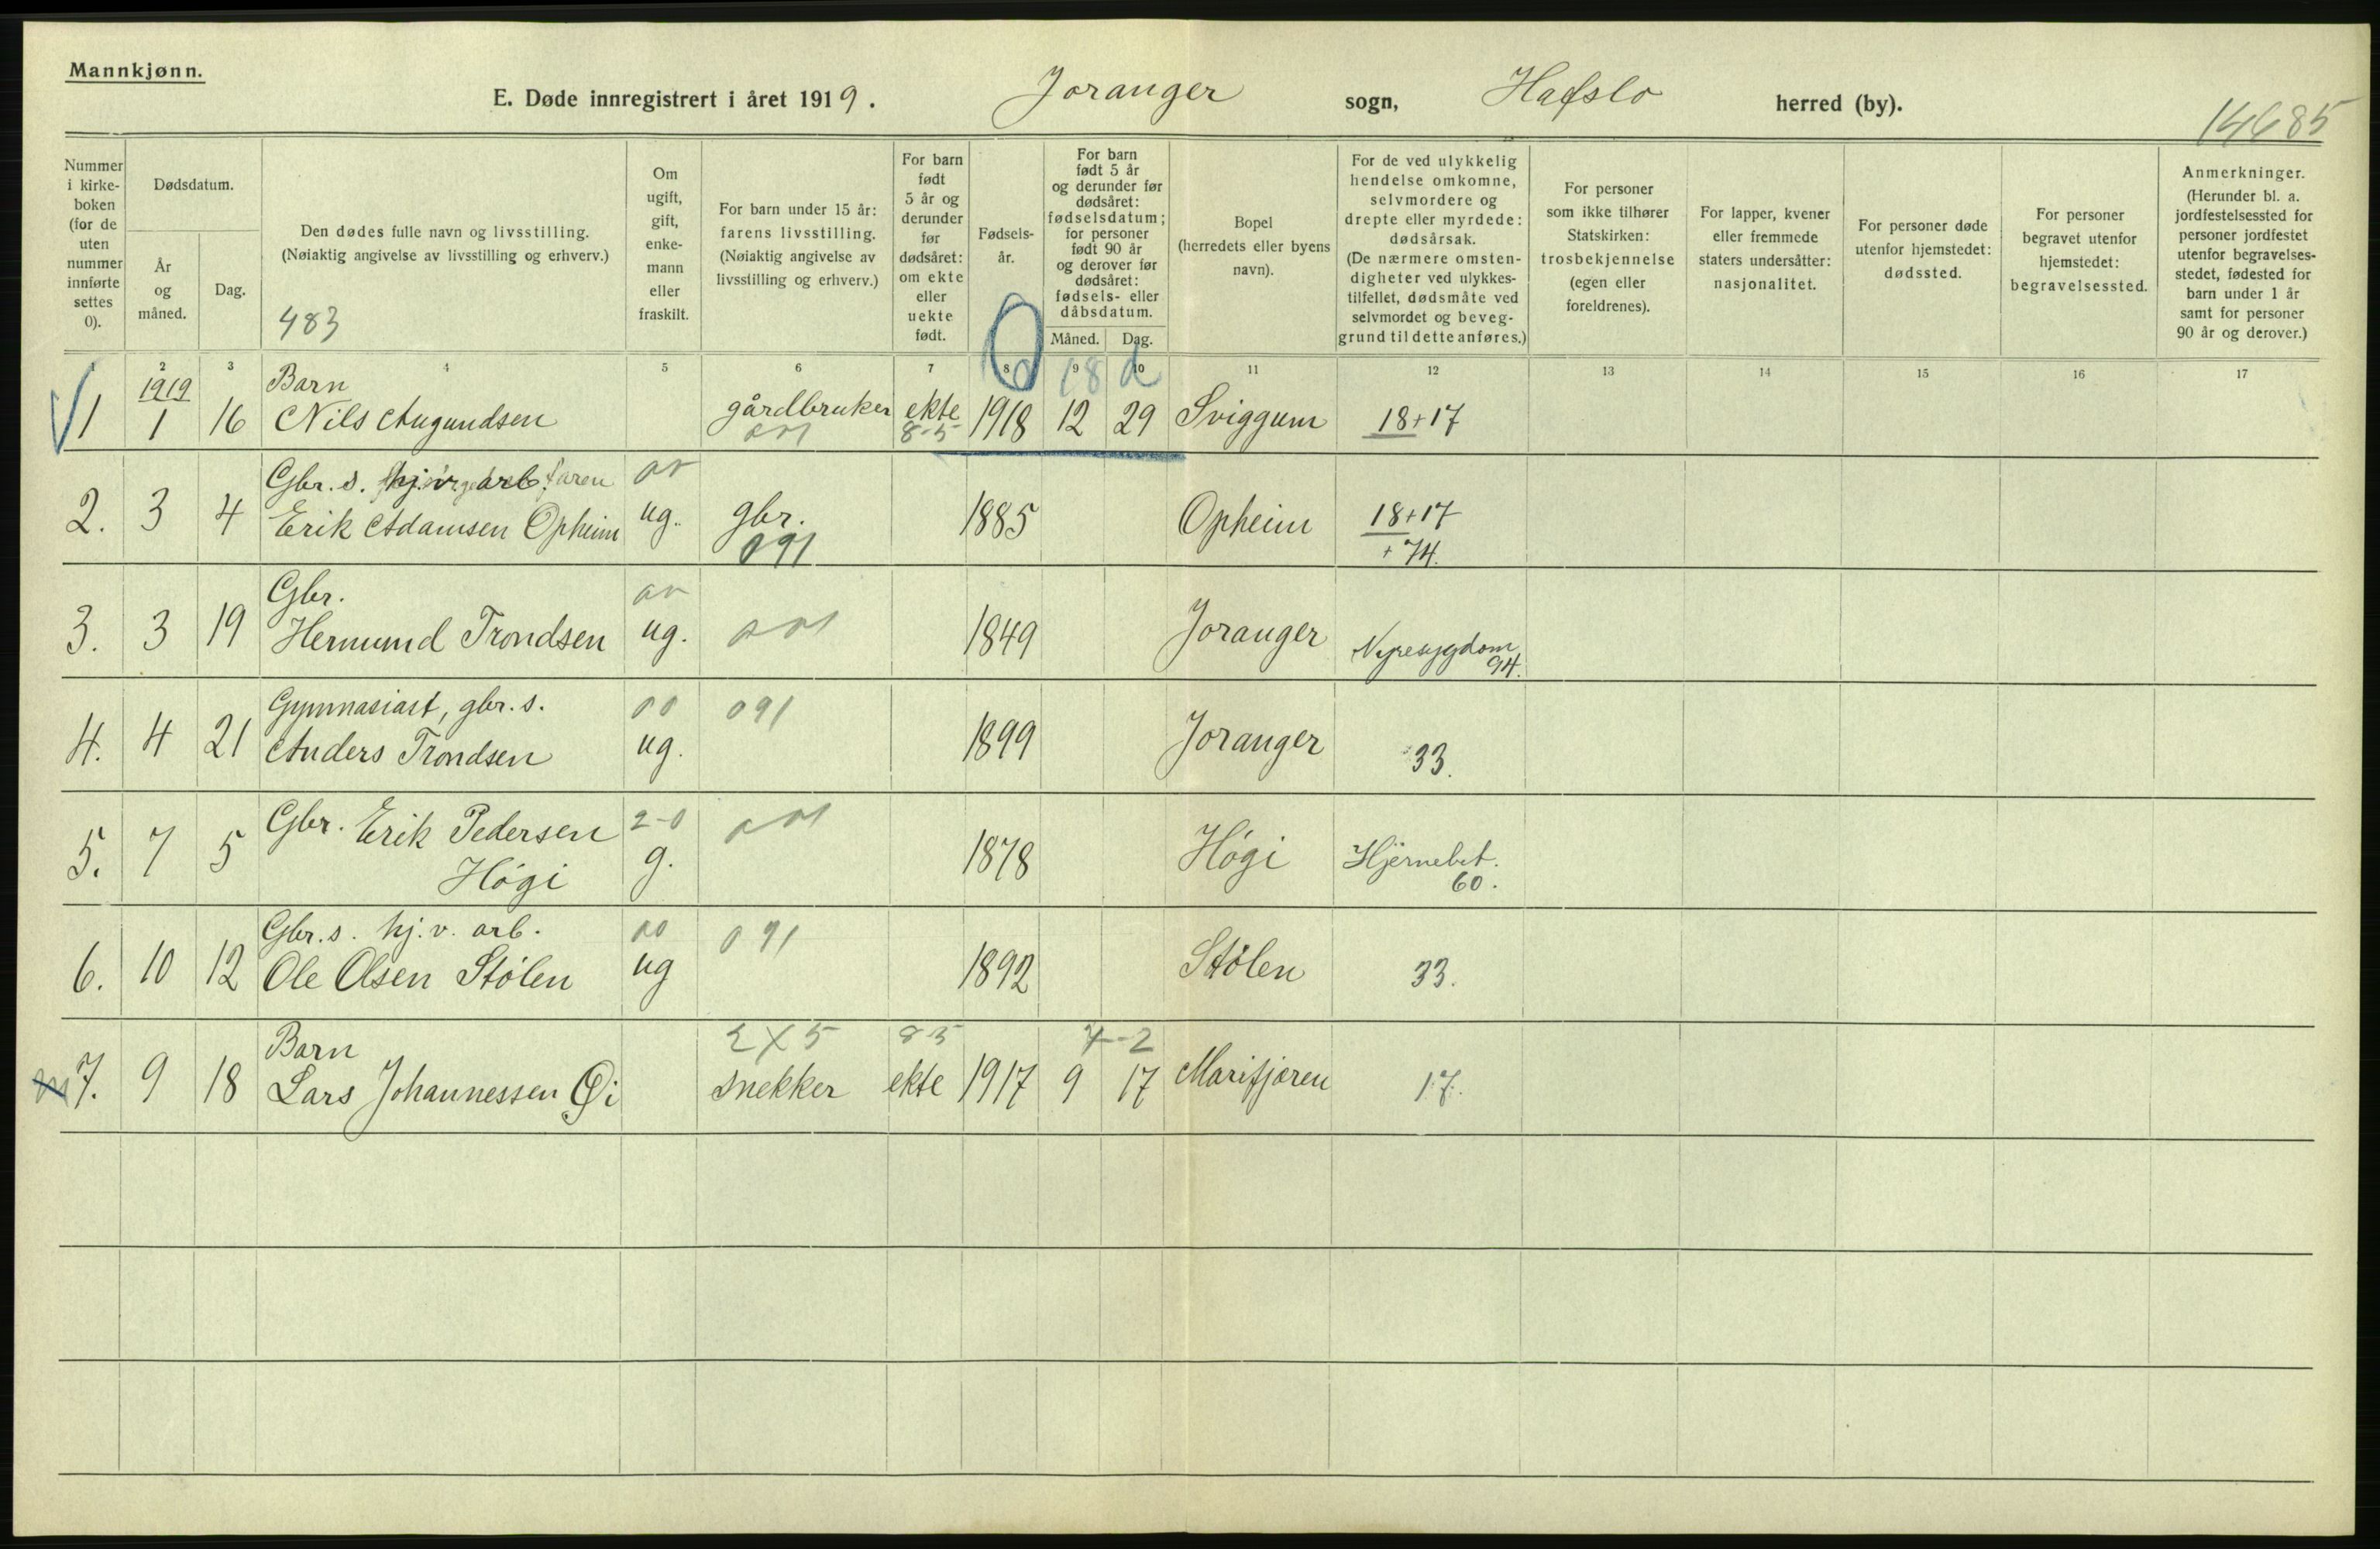 Mannkjønn.
E. Døde innregistrert i året 1919. Joranger sogn, Hafslo herred (by).
14685
Nummer i kirke-boken (for de uten nummer innførte settes 0).
Dødsdatum.
År og måned.
Dag.
Den dødes fulle navn og livsstilling.
(Nøiaktig angivelse av livsstilling og erhverv.)
483
Om ugift, gift, enke-mann eller fraskilt.
For barn under 15 år: farens livsstilling.
(Nøiaktig angivelse av livsstilling og erhverv.)
For barn født 5 år og derunder før dødsåret: om ekte eller uekte født.
Fødsels-år.
For barn født 5 år og derunder før dødsåret: fødselsdatum; for personer født 90 år og derover før dødsåret: fødsels- eller dåbsdatum.
Måned.
Dag.
Bopel (herredets eller byens navn).
For de ved ulykkelig hendelse omkomne, selvmordere og drepte eller myrdede: dødsårsak.
(De nærmere omsten-digheter ved ulykkes-tilfellet, dødsmåte ved selvmordet og beveg-grund til dette anføres.)
For personer som ikke tilhører Statskirken: trosbekjennelse (egen eller foreldrenes).
For lapper, kvener eller fremmede staters undersåtter: nasjonalitet.
For personer døde utenfor hjemstedet: dødssted.
For personer begravet utenfor hjemstedet: begravelsessted.
Anmerkninger.
(Herunder bl. a. jordfestelsessted for personer jordfestet utenfor begravelses-stedet, fødested for barn under 1 år samt for personer 90 år og derover.)
1 2 3 4 5 6 7 8 9 10 11 12 13 14 15 16 17
1919 Barn 18 d
1 1 16 Nils Augundsen gårdbruker ekte 1918 12 29 Sviggum 18+17
8-5
Gbr. s. hj. v. arb. faren
2. 3 4 Erik Adamsen Opheim ug. gbr. 1885 Opheim 18+17
091 +74.
Gbr.
3. 3 19 Hermund Trondsen ug. 1849 Joranger Nyresygdom
94.
Gymnasiast, gbr. s. 00 091
4. 4 21 Anders Trondsen ug. 1899 Joranger 33.
Gbr. Erik Pedersen 2-0
5. 7 5 Høgi g. 1878 Høgi Hjernebet.
60.
Gbr. s. hj. v. arb. 00 091
6. 10 12 Ole Olsen Stølen ug 1892 Stølen 33.
Barn 2X5 8-5 7-2
7. 9 18 Lars Johannessen Øi snekker ekte 1917 9 17 Marifjæren 17.